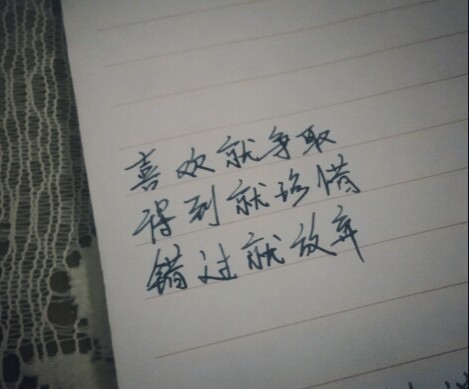 喜欢就争取
得到就珍惜
错过就放弃